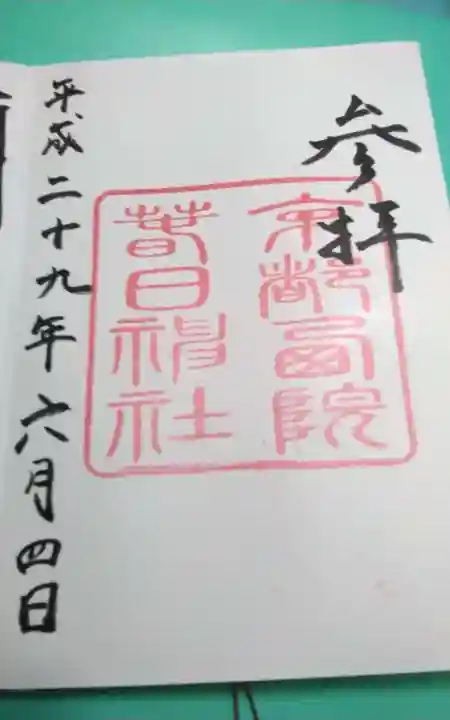 參拝
京都西院
春日神社
平成二十九年六月四日